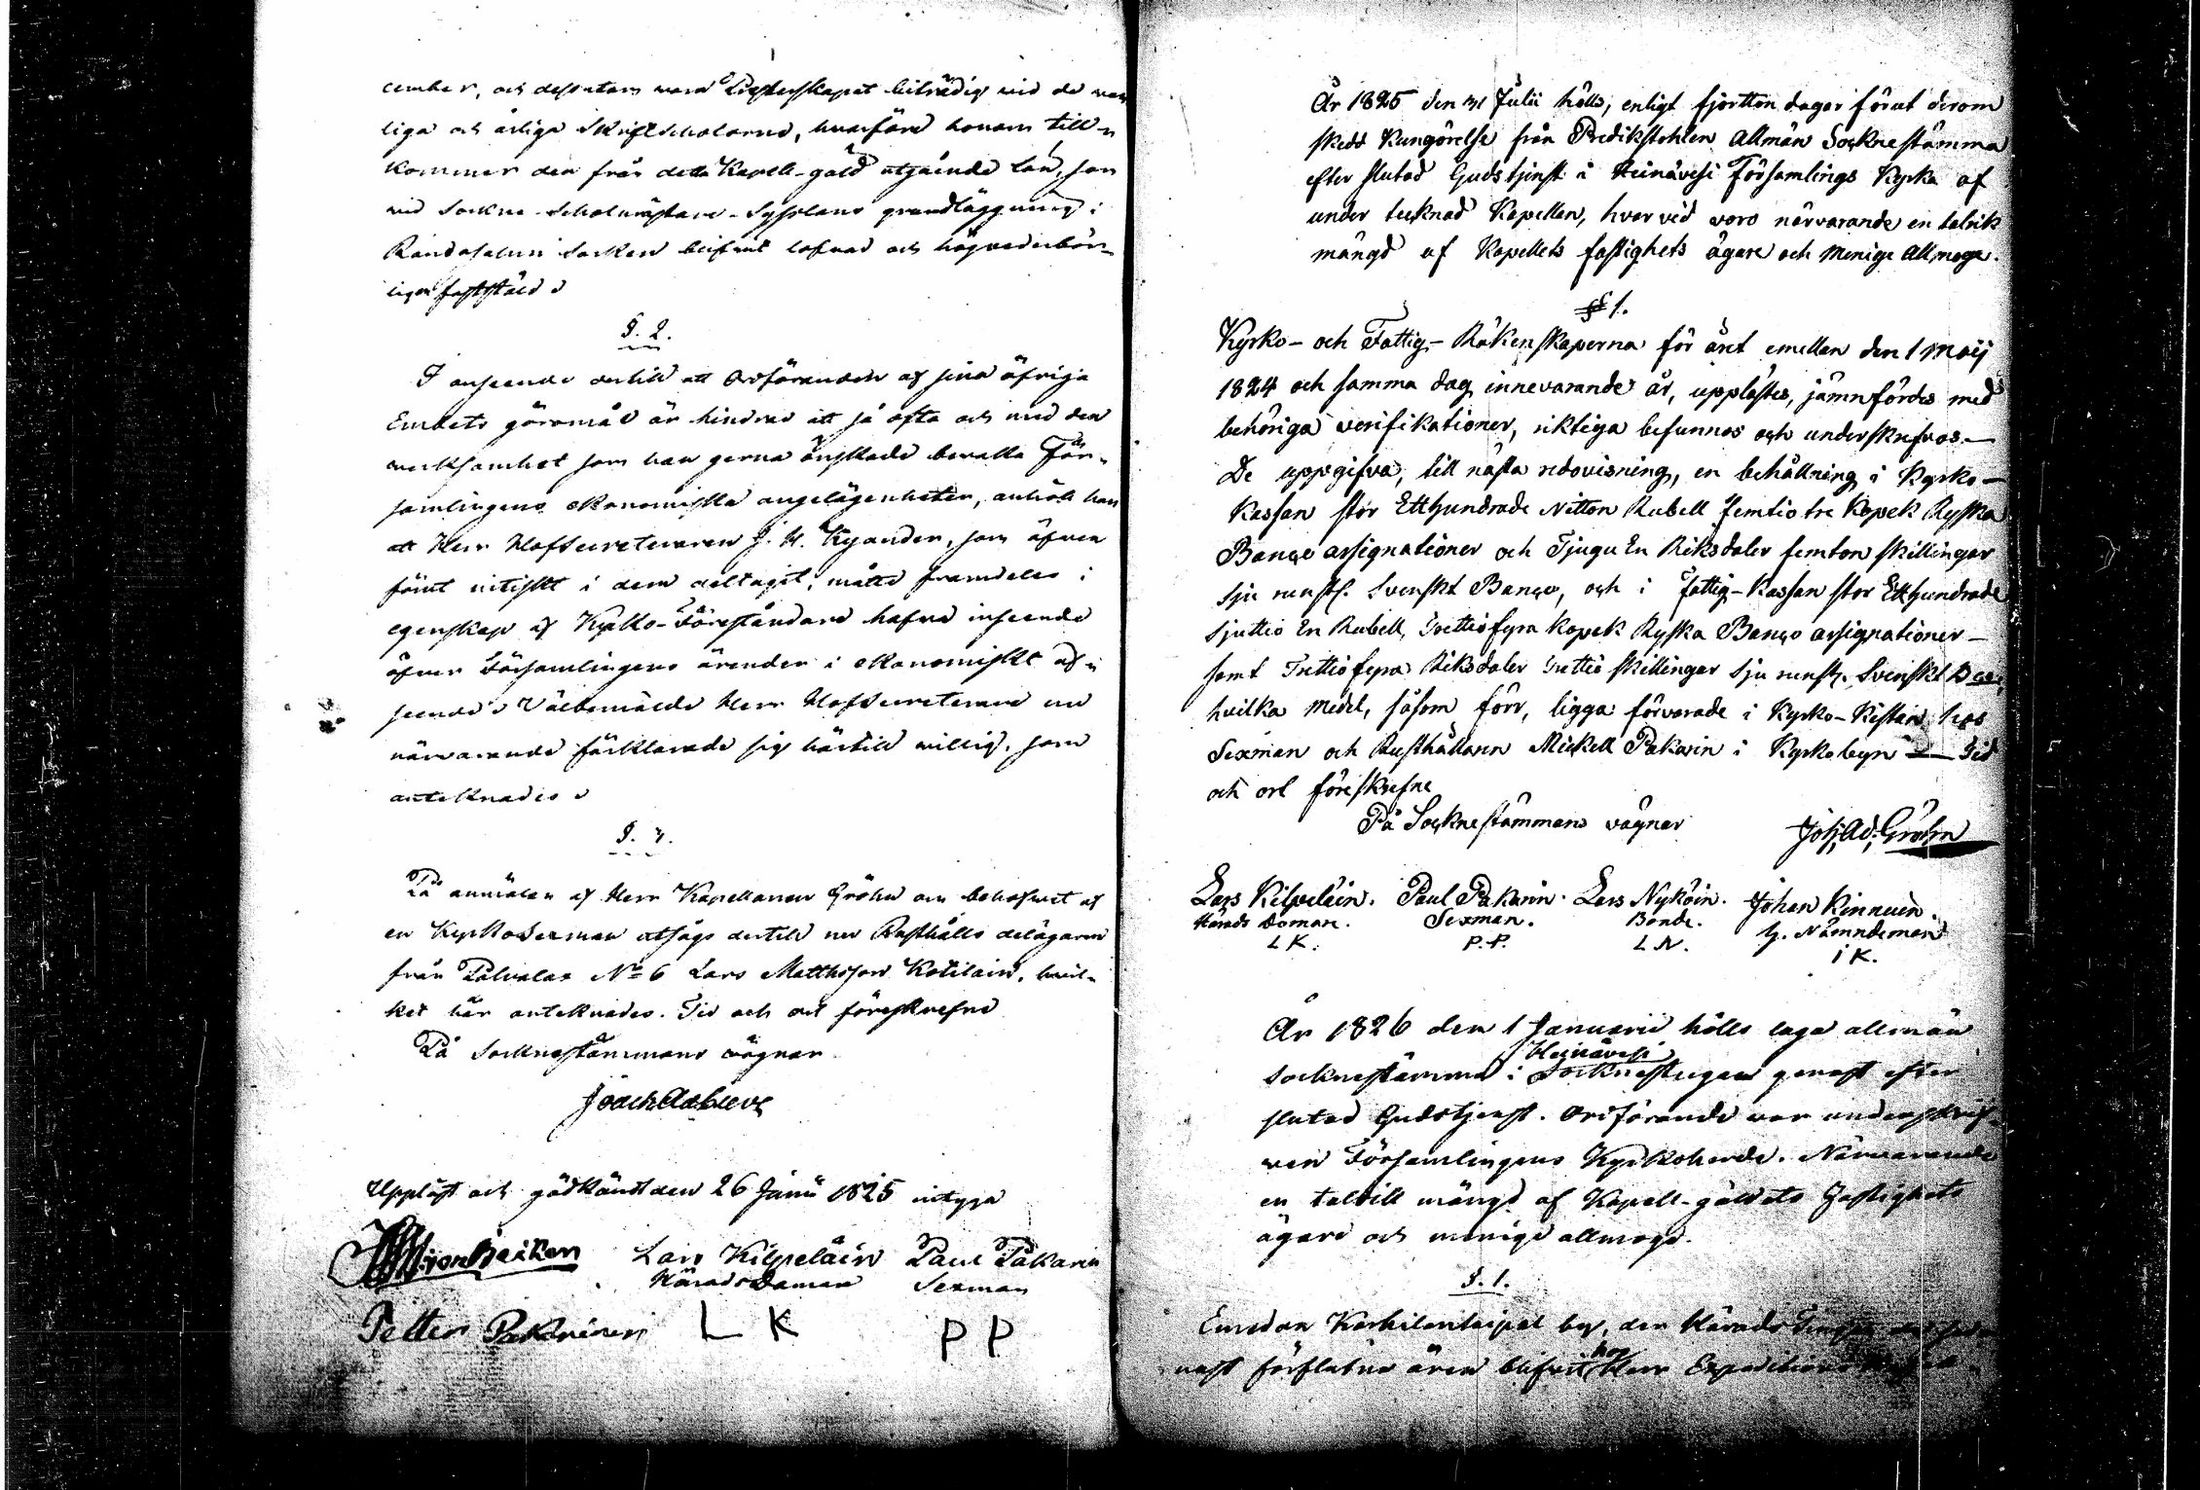 cember, och dessutom vara Presterskapet biträdig vid de van
liga och årliga Skriftscholorne, hvarföre honom till-
kommer den från detta Kapell-gäld utgående lön, som
vid Sockne-Scholmästare-Sysslans grundläggning i
Randasalmi Socken blifvit lofvad och högvederbör-
ligen fastställd
§. 2.
I anseende dertill att Ordföranden af sina öfriga
Embets göromål är hindrad att så ofta och med den
verksamhet som han gerna önskade bevaka För-
samlingens ekonomiska angelägenheter, anhöll han
att Herr Hofsecreteraren J. H. Kyander, som äfven
förut nitiskt i dem deltagit, måtte framdeles i
egenskap af Kyrko-Föreståndare hafva inseende
öfver Församlingens ärenden i ekonomiskt af-
seende Välbemälde Herr Hofsecreterare nu
närvarande förklarade sig härtill willig, som
anteknades
§. 3.
På anmälan af Herr Kapellanen Gröhn om behofvet af
en Kyrko Sexman utsågs dertill nu Rusthålls delägaren
från Palvalax No 6 Lars Matthsson Kotilain, hvil-
ket här anteknades. Tid och ort föreskrefne
På Socknestämmans vägnar
Uppläst och godkändt den 26 Junii 1825 intyga
Lars Kilpeläin Paul Pakarin
Härads Doman Sexman
Petter Pakarinen L K P P
År 1825 den 31 Julii hölls, enligt fjortton dagar förut derom
skedd Kungörelse från Predikstohlen Allmän Socknestämma
efter slutad Gudstjenst i Heinävesi Församlings Kyrka af
under tecknad Kapellan, hvar vid voro närvarande en talrik
mängd af Kapellets fastighets ägare och menige Allmoge.
§ 1.
Kyrko- och Fattig- Räkenskaperna för året emellan den 1 Maij
1824 och samma dag innevarande år, upplästes, jämnfördes med
behöriga verifikationer, riktiga befunnos och underskrefvos.—
De uppgifva, till nästa redovisning, en behållning i Kyrko—
Kassan stor Etthundrade Nitton Rubell femtio tre Kopek Ryska
Banco assignationer och Tjugu En Riksdaler femton skillingar
sju runst. Svenskt Banco, och i Fattig-Kassan stor Etthundrade
Sjuttio En Rubell, Trettiofyra kopek Ryska Banco assignationer—
samt Trettiofyra Riksdaler Trettio skillingar sju runst. Svenskt Bco;
hvilka medel, såsom förr, ligga förvarade i Kyrko-Kistan hos
Sexman och Rusthållaren Mickell Pakarin i Kyrkobyn — Tid
och ort föreskrefne
På Socknestämmans vägnar Joh; Ad; Gröhn
Lars Kilpeläin. Paul Pakarin. Lars Nykäin. Johan Kinnuin.
Härads Doman. Sexman. Bonde. h. Nämndeman
L K. P. P. L N. i K.
År 1826 den 1 Januarii hölls laga allmän
Heinävesi
Socknestämma i Socknestugan genast efter
slutad Gudstjenst. Ordförande var underskrif-
ven Församlingens Kyrkoherde. Närvarande
en talrik mängd af Kapell-gäldets Fastighets
ägare och menige allmoge.
§. 1.
Emedan Karhilantaipal by, der Härads
nast förflutne åren blifvit hos Herr Expeditions